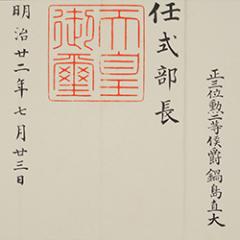 正三位勲二等侯爵鍋島直大
任式部長
天皇御璽
明治廿二年七月廿三日